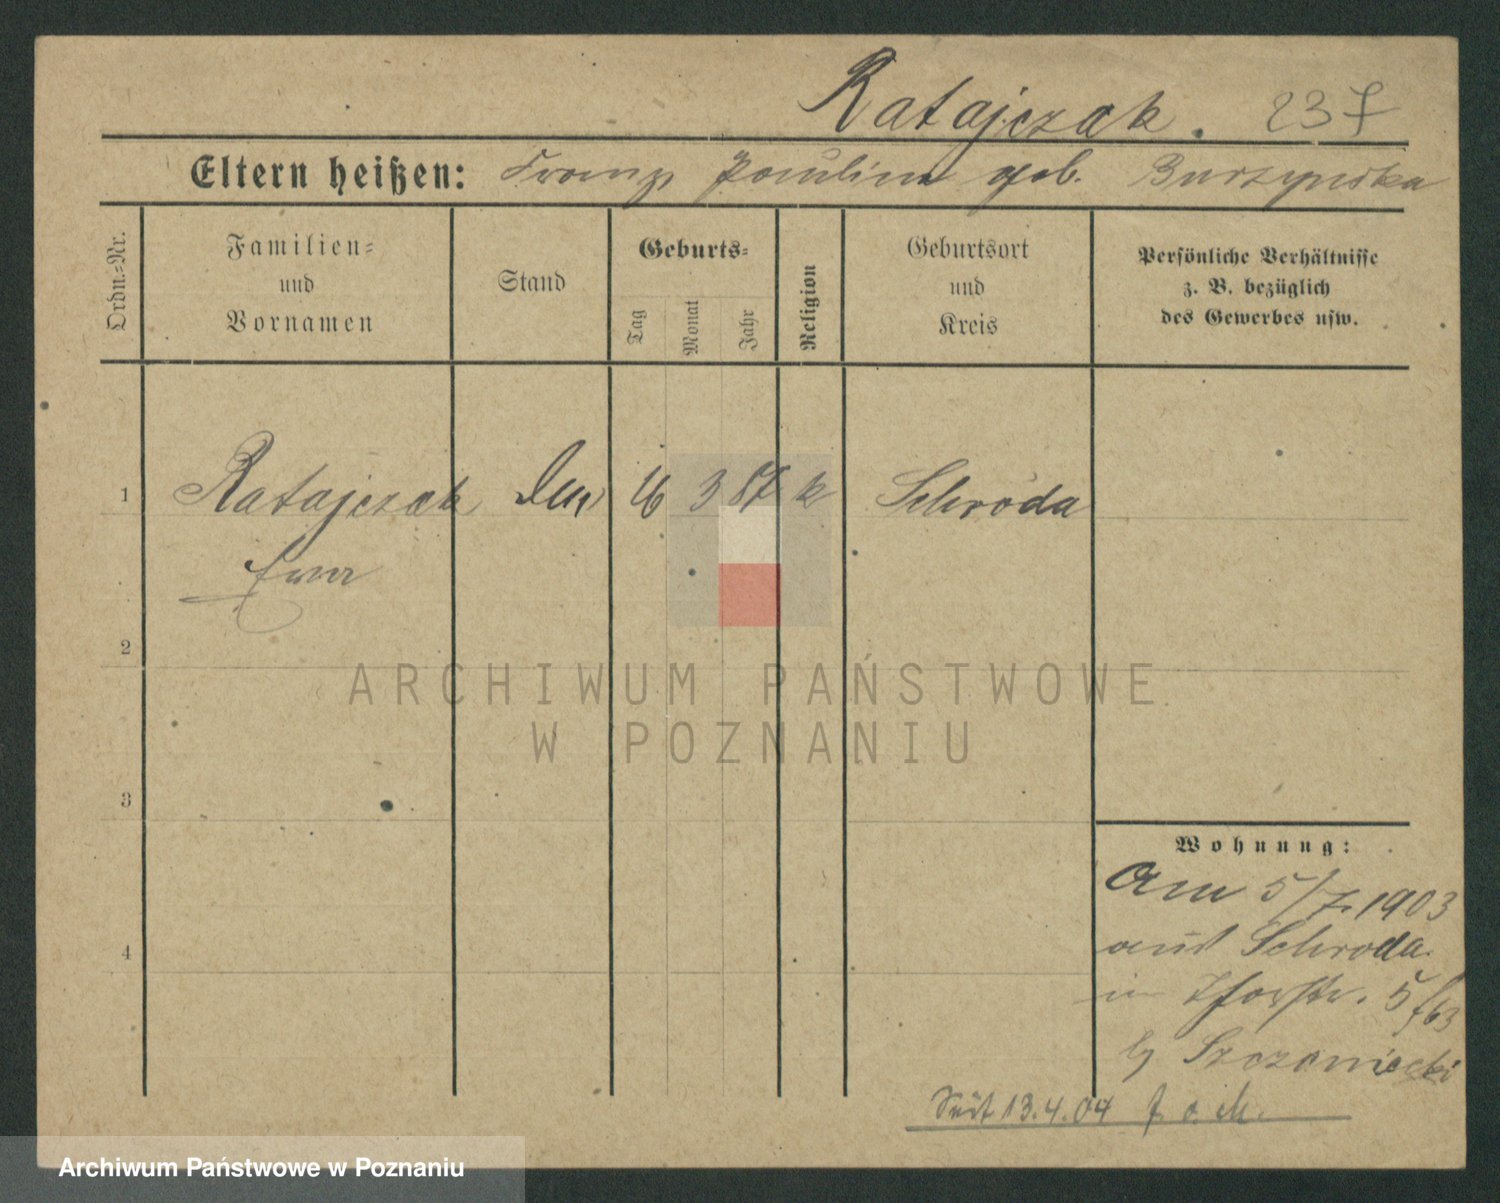 Ratajczak. 237
Eltern heißen: Franz Paulina geb. Burzynska
Ordn.=Nr.
Familien=
und
Vornamen
Stand
Geburts=
Tag
Monat
Jahr
Religion
Geburtsort
und
Kreis
Persönliche Verhältnisse
z. B. bezüglich
des Gewerbes usw.
1 Ratajczak 16 3 87 k Schroda
Ewa
2
3
4
Wohnung:
Am 5/7. 1903
aus Schroda
in 5
b/ Szczaniecki
Seit 13.4.04
ARCHIWUM PAŃSTWOWE
W POZNANIU
Archiwum Państwowe w Poznaniu